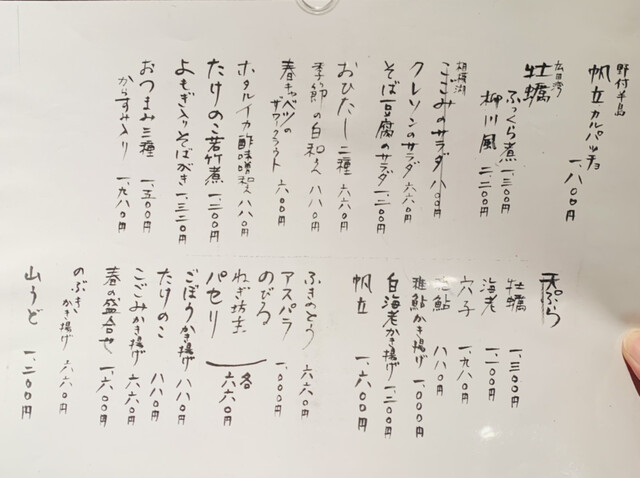 野付半島
帆立カルパッチョ 一、八〇〇円
広田湾
牡蠣 ふっくら煮 一、三〇〇円
柳川風 二、二〇〇円
相模湖
こごみのサラダ 八八〇円
クレソンのサラダ 六六〇円
そば豆腐のサラダ 一、二〇〇円
おひたし二種 六六〇円
季節の白和え 八八〇円
春キャベツの
ザワークラウト 六六〇円
ホタルイカ酢味噌和え 八八〇円
たけのこ若竹煮 一、二〇〇円
よもぎ入りそばがき 一、三二〇円
おつまみ三種 一、五〇〇円
からすみ入り 一、九八〇円
天ぷら
牡蠣 一、三〇〇円
海老 一、一〇〇円
穴子 一、九八〇円
稚鮎 八八〇円
稚鮎かき揚げ 一、〇〇〇円
白海老かき揚げ 一、二〇〇円
帆立 一、六〇〇円
ふきのとう 六六〇円
アスパラ 一、〇〇〇円
のびる
ねぎ坊主
パセリ 各 六六〇円
ごぼうかき揚げ 八八〇円
たけのこ 八八〇円
こごみかき揚げ 六六〇円
春の盛合せ 一、六〇〇円
のぶきかき揚げ 六六〇円
山うど 一、二〇〇円